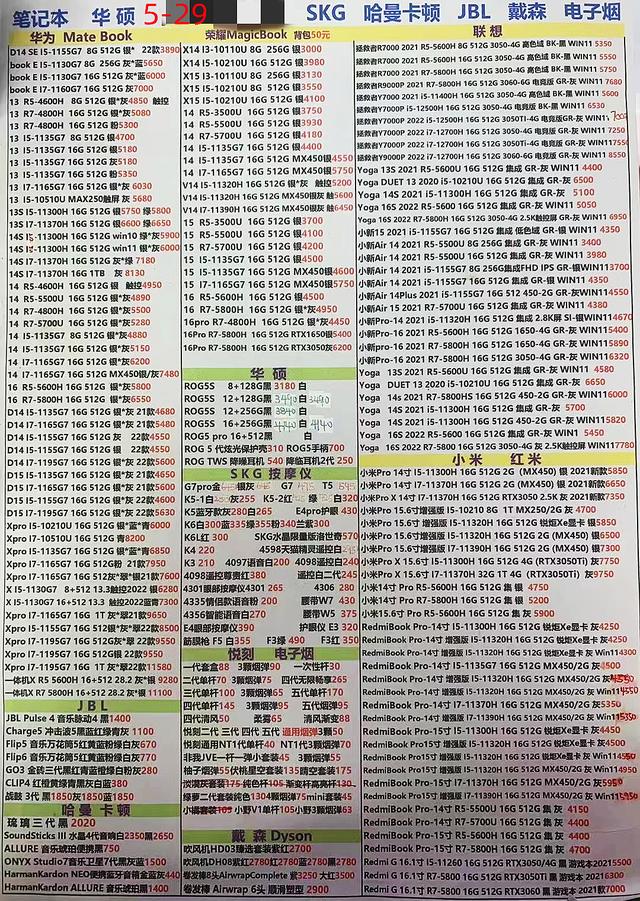 笔记本 华硕 5-29 SKG 哈曼卡顿 JBL 戴森 电子烟
华为 Mate Book
D14 SE I5-1155G7 8G 512G 银* 22款3890
book E I5-1130G7 8G 256G 灰*蓝5650
book E I5-1130G7 16G 512G 灰*蓝6000
book E I7-1160G7 16G 512G 灰*蓝7000
13 R5-4600H 8G 512G 银*灰4850 触控
13 R7-4800H 16G 512G 银*灰5080
13 R7-4800H 16G 512G 粉5300
13 I5-1135G7 8G 512G 银4700
13 I5-1135G7 16G 512G 银5180
13 I5-1135G7 16G 512G 灰5180
13 I5-1135G7 16G 512G 粉5350
13 I7-1165G7 16G 512G 银*灰 6030
13 I5-10510U MAX250触屏 灰 5680
13S I5-11300H 16G 512G 银5750 绿5800
13S I7-11370H 16G 512G 银6600 绿6650
14S I5-11300H 16G 512G win10 绿*灰5900
14S I5-11300H 16G 512G win11 银*灰6000
14S I7-11370H 16G 512G 灰*绿 7180
14S I7-11370H 16G 1TB 灰 8130
14 R5-4600H 16G 512G 银 触控4950
14 R5-5500U 16G 512G 银*灰4890
14 R7-4800H 16G 512G 银*灰5500
14 R7-5700U 16G 512G 银*灰5280
14 I5-1135G7 8G 512G 银*灰4880
14 I5-1135G7 16G 512G 银*灰5150
14 I7-1165G7 16G 512G 银*灰6200
14 I7-1165G7 16G 512G MX450银/灰7480
16 R5-5600H 16G 512G 银*灰5800
16 R7-5800H 16G 512G 银*灰6550
D14 I5-1135G7 16G 512G 银*灰 21款4680
D14 I5-1135G7 16G 512G 银*灰 22款4480
D14 I5-1155G7 16G 512G 灰 22款4550
D14 I5-1155G7 16G 512G 银 22款4550
D14 I7-1195G7 16G 512G 银*灰 22款5600
D15 I5-1135G7 16G 512G 银*灰 21款4650
D15 I5-1155G7 16G 512G 银*灰 22款4550
D15 I7-1195G7 16G 512G 银*灰 22款5500
Xpro I5-10210U 16G 512G 银*蓝*青6000
Xpro I7-10510U 16G 512G 青8200
Xpro I5-1135G7 16G 512G 银*蓝*青6850
Xpro I7-1165G7 16G 512G粉 21款7950
Xpro I7-1165G7 16G 512灰*翠*银21款7600
X I5-1130G7 8+512 13.3触控2022 银6280
X I5-1130G7 16+512 13.3 触控2022蓝青7300
Xpro I7-11655G7 16G 512G 灰*翠*银9650
Xpro I5-1155G7 16G 512银*灰*翠22款8500
Xpro I7-1195G7 16G 512G灰*翠 22款9550
Xpro I7-1195G7 16G 1T 灰*翠22款11580
一体机X R5 5600H 16+512 28.2 灰*银 9280
一体机X R7 5800H 16+512 28.2 灰*银 11100
JBL
JBL Pulse 4 音乐脉动4 黑1400
Charge5 冲击波5黑蓝红绿青灰 1100
Flip5 音乐万花筒5红黄蓝粉绿白灰670
Flip6 音乐万花筒6红黄蓝粉绿白灰770
GO3 金砖三代黑红青蓝橙绿白粉灰280
CLIP4 红橙黄绿青黑灰白蓝380
战鼓 3代 黑1850灰1850蓝1850
哈曼卡顿
琉璃三代黑 2020
SoundSticks III 水晶4代音响白2350黑2650
ALLURE 音乐琥珀便携黑750
ONYX Studio7音乐卫星7代黑灰蓝1500
HarmanKardon NEO便携蓝牙音箱金蓝灰440
HarmanKardon ALLURE 音乐琥珀黑1400
荣耀MagicBook 背包50元
X14 I3-10110U 8G 256G 银3000
X14 I5-10210U 16G 512G 银3980
X15 I3-10110U 8G 256G 银3130
X15 I5-10210U 8G 512G 银3550
X15 I5-10210U 16G 512G 银4100
14 R5-3500U 16G 512G 银3750
14 R5-5500U 16G 512G 银3930
14 R7-5700U 16G 512G 银4180
14 I5-1135G7 16G 512G 银4400
14 I5-1135G7 16G 512G MX450银4550
14 I7-1165G7 16G 512G MX450银5750
V14 I5-11320H 16G 512G 银灰 触控5200
V14 I5-11320H 16G 512G MX450银灰 触5600
V14 I7-11390H 16G 512G MX450银灰 触6450
15 R5-3500U 16G 512G 银3700
15 R5-5500U 16G 512G 银4100
15 R7-5700U 16G 512G 银4200
15 I5-1135G7 16G 512G 银4500
15 I5-1135G7 16G 512G MX450银4600
15 I7-1165G7 16G 512G MX450银5750
16 R5-5600H 16G 512G 银4500
16 R7-5800H 16G 512G 银*灰4950
16pro R7-4800H 16G 512G 银*灰4450
16Pro R7-5800H 16G 512G RTX1650银5400
16Pro R7-5800H 16G 512G RTX3050灰6200
华硕
ROG5S 8+128G黑 3180 白
ROG5S 12+128G黑 3440 白 3440
ROG5S 12+256G黑 3840 白
ROG5S 16+256G黑 白 4140
ROG5 pro 16+512黑 白
ROG 5 代炫光保护壳310 ROG5手柄700
ROG TWS 降噪耳机 540 降临耳机2代 250
SKG 按摩仪
K5蓝牙款灰280白265 E4pro护眼 430
K6白300蓝335绿355粉340兰紫300
K6L红 300 SKG水晶限量版音世奇570
K4 220
K3 210 4097语音白200 4098遥控白240
4098遥控尊贵红380 遥控白二代245
4301眼部按摩仪4301 265 4306 280
4335情侣款语音粉 200 腰带W7 430
4356智能语音白270 腰带W5 375
E4眼部按摩仪390 护眼仪 E3 320
筋膜枪 F5 白355 F3绿 490 F3红 350
悦刻 电子烟
一代套盒88 3颗烟弹90 一次性杆30
二代单杆70 3颗烟弹75 四代无限畅享265
三代单杆100 3颗烟弹65 五代单杆170
四代单杆145 3颗烟弹95 五代烟弹95
四代清风50 柔雾65 清风渐变88
悦刻二代 三代 四代 五代 通用烟弹3颗50
悦刻通用NT1代单杆40 NT1代3颗烟弹70
非我JVE一杆一弹小套装45 3颗烟弹55
柚子烟弹55伏桃星空套装135晴空套装175
绿萝二代套装纯色130 4颗烟弹75mini套装45
戴森 Dyson
吹风机HD03臻选套装紫红2700
吹风机DH08紫红2780红2780蓝2780黑2780
卷发棒AirwrapComplete 紫3250 大红3500
卷发棒 Airwrap 6头 顺滑塑型 2900
联想
拯救者R7000 2021 R5-5600H 8G 512G 3050-4G 高色域 BK-黑 WIN11 5350
拯救者R7000 2021 R5-5600H 16G 512G 3050-4G 高色域 BK-黑 WIN11 5550
拯救者R7000 2021 R7-5800H 16G 512G 3050-4G 高色域 BK-黑 WIN11 5750
拯救者R9000P 2021 R7-5800H 16G 512G 3060-6G 电竞版 GR-灰 WIN11 7680
拯救者Y7000 2021 i5-11400H 16G 512G 3050-4G 高色域 BK-黑 WIN11 5600
拯救者Y7000P 2022 i5-12500H 16G 512G 3050-4G 电竞版 BK-黑 WIN11 6530
拯救者Y7000P 2022 i5-12500H 16G 512G 3050Ti-4G 电竞版GR-灰 WIN11
拯救者Y7000P 2022 i7-12700H 16G 512G 3050-4G 电竞版 GR-灰 WIN11
拯救者Y7000P 2022 i7-12700H 16G 512G 3050Ti-4G 电竞版GR-灰 WIN11 7550
拯救者Y9000P 2022 i7-12700H 16G 512G 3060-6G 电竞版 GR-灰 WIN11 8550
Yoga 13S 2021 R5-5600U 16G 512G 集成 GR-灰 WIN11 4400
Yoga DUET 13 2020 i5-10210U 16G 512G 集成 GR-灰 6500
Yoga 14S 2021 i5-11300H 16G 512G 集成 GR-灰 5100
Yoga 16S 2022 R5-5600 16G 512G 集成 GR-灰 WIN11 5050
Yoga 16S 2022 R7-5800H 16G 512G 3050-4G 2.5K触控屏 GR-灰 WIN11 6950
小新15 2021 i5-11300H 16G 512G 集成 低色域 GR-银 WIN11 4350
小新Air 14 2021 R5-5500U 8G 256G 集成 GR-灰 WIN11 3400
小新Air 14 2021 R5-5500U 16G 512G 集成 GR-灰 WIN11 3980
小新Air 14 2021 i5-1155G7 8G 256G集成FHD IPS GR-银WIN113700
小新Air 14 2021 i5-1155G7 16G 512G 集成 GR-银 WIN11 4350
小新Air 14Plus 2021 i5-1155G7 16G 512 450-2G GR-灰WIN114550
小新Air 15 2021 R7-5700U 16G 512G 集成 GR-灰 WIN11 4380
小新Pro-14 2021 i5-11320H 16G 512G 集成 2.8K屏 SI-银WIN114670
小新Pro-16 2021 R5-5600H 16G 512G 1650-4G GR-灰 WIN115400
小新Pro-16 2021 R7-5800H 16G 512G 1650-4G GR-灰 WIN115890
小新Pro-16 2021 R7-5800H 16G 512G 3050-4G GR-灰 WIN116320
Yoga 13S 2021 R5-5600U 16G 512G 集成 GR-灰 WIN11 4580
Yoga DUET 13 2020 i5-10210U 16G 512G 集成 GR-灰 6650
Yoga 14s 2021 R7-5800HS 16G 512G 450-2G GR-灰 WIN116000
Yoga 14S 2021 i5-11300H 16G 512G 集成 GR-灰 5700
Yoga 14S 2021 i5-11320H 16G 512G 450-2G GR-灰 WIN115220
Yoga 16S 2022 R5-5600 16G 512G 集成 GR-灰 WIN1 5450
Yoga 16S 2022 R7-5800H 16G 512G 3050-4G GR-灰 2.5K触控屏 WIN117780
小米 红米
小米Pro 14寸 I5-11300H 16G 512G 2G (MX450) 银 2021新款5850
小米Pro 14寸 I7-11370H 16G 512G 2G (MX450) 银 2021新款6650
小米Pro X 14寸 I7-11370H 16G 512G RTX3050 2.5K 灰 2021新款7350
小米Pro 15.6寸增强版 I5-10210 8G 1T MX250/2G 灰 4700
小米Pro 15.6寸 增强版 I5-11320H 16G 512G 锐炬Xe显卡 银5850
小米Pro 15.6寸 增强版 I5-11320H 16G 512G 2G (MX450) 银6500
小米Pro 15.6寸 增强版 I7-11390H 16G 512G 2G (MX450) 银7300
小米Pro X 15.6寸 I5-11300H 16G 512G 4G（RTX3050Ti）灰7750
小米Pro X 15.6寸 I7-11370H 32G 1T 4G（RTX3050Ti）灰9750
小米14寸 Pro R5-5600H 8G 512G 集显 银 4750
小米14寸 Pro R7-5800H 16G 512G 集显 银 5200
小米15.6寸 Pro R5-5600H 16G 512G 灰 5900
RedmiBook Pro-14寸 I5-11300H 16G 512G 锐炬Xe显卡 灰4250
RedmiBook Pro-14寸 增强版 I5-11320H 16G 512G 锐炬Xe显卡 灰4250
RedmiBook Pro-14寸 增强版 I5-11320H 16G 512G 锐炬Xe显卡 灰Win114300
RedmiBook Pro-14寸 I7-11370H 16G 512G MX450/2G 灰5350
RedmiBook Pro 15寸 I5-11300H 16G 512G 锐炬Xe显卡 灰4450
RedmiBook Pro-14寸 R5-5500U 16G 512G 集 灰 4150
RedmiBook Pro-14寸 R7-5700U 16G 512G 集 灰 4400
RedmiBook Pro-15寸 R5-5600H 16G 512G 集 灰 4400
RedmiBook Pro-15寸 R7-5800H 16G 512G 集 灰 4700
Redmi G 16.1寸 I5-11260 16G 512G RTX3050/4G 黑 游戏本20215500
Redmi G 16.1寸 R7-5800 16G 512G RTX3060 黑 游戏本 2021款7000